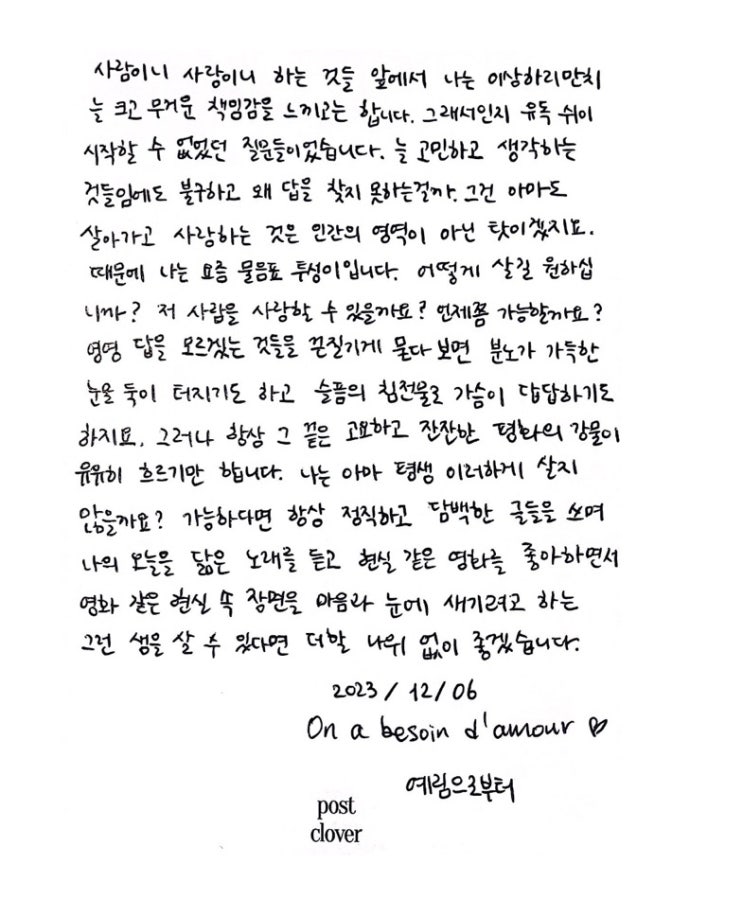 사람이니 사랑이니 하는 것들 앞에서 나는 이상하리만치
늘 크고 무거운 책임감을 느끼고는 합니다. 그래서인지 유독 쉬이
시작할 수 없었던 질문들이었습니다. 늘 고민하고 생각하는
것들임에도 불구하고 왜 답을 찾지 못하는걸까. 그건 아마도
살아가고 사랑하는 것은 인간의 영역이 아닌 탓이겠지요.
때문에 나는 요즘 물음표 투성이입니다. 어떻게 살길 원하십
니까? 저 사람을 사랑할 수 있을까요? 언제쯤 가능할까요?
영영 답을 모르겠는 것들을 끈질기게 묻다 보면 분노가 가득한
눈물 둑이 터지기도 하고 슬픔의 침전물로 가슴이 답답하기도
하지요. 그러나 항상 그 끝은 고요하고 잔잔한 평화의 강물이
유유히 흐르기만 합니다. 나는 아마 평생 이러하게 살지
않을까요? 가능하다면 항상 정직하고 담백한 글들을 쓰며
나의 오늘을 닮은 노래를 듣고 현실 같은 영화를 좋아하면서
영화 같은 현실 속 장면을 마음과 눈에 새기려고 하는
그런 생을 살 수 있다면 더할 나위 없이 좋겠습니다.
2023/12/06
On a besoin d'amour ♡
예림으로부터
post
clover